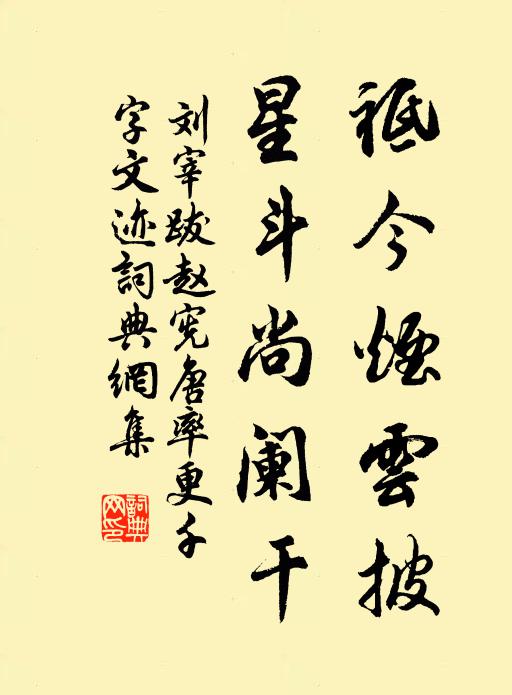 祗今烟雲披
星斗尚阑干
刘宰跋赵宪唐率更千
字文迹詞典網集
詞典网印